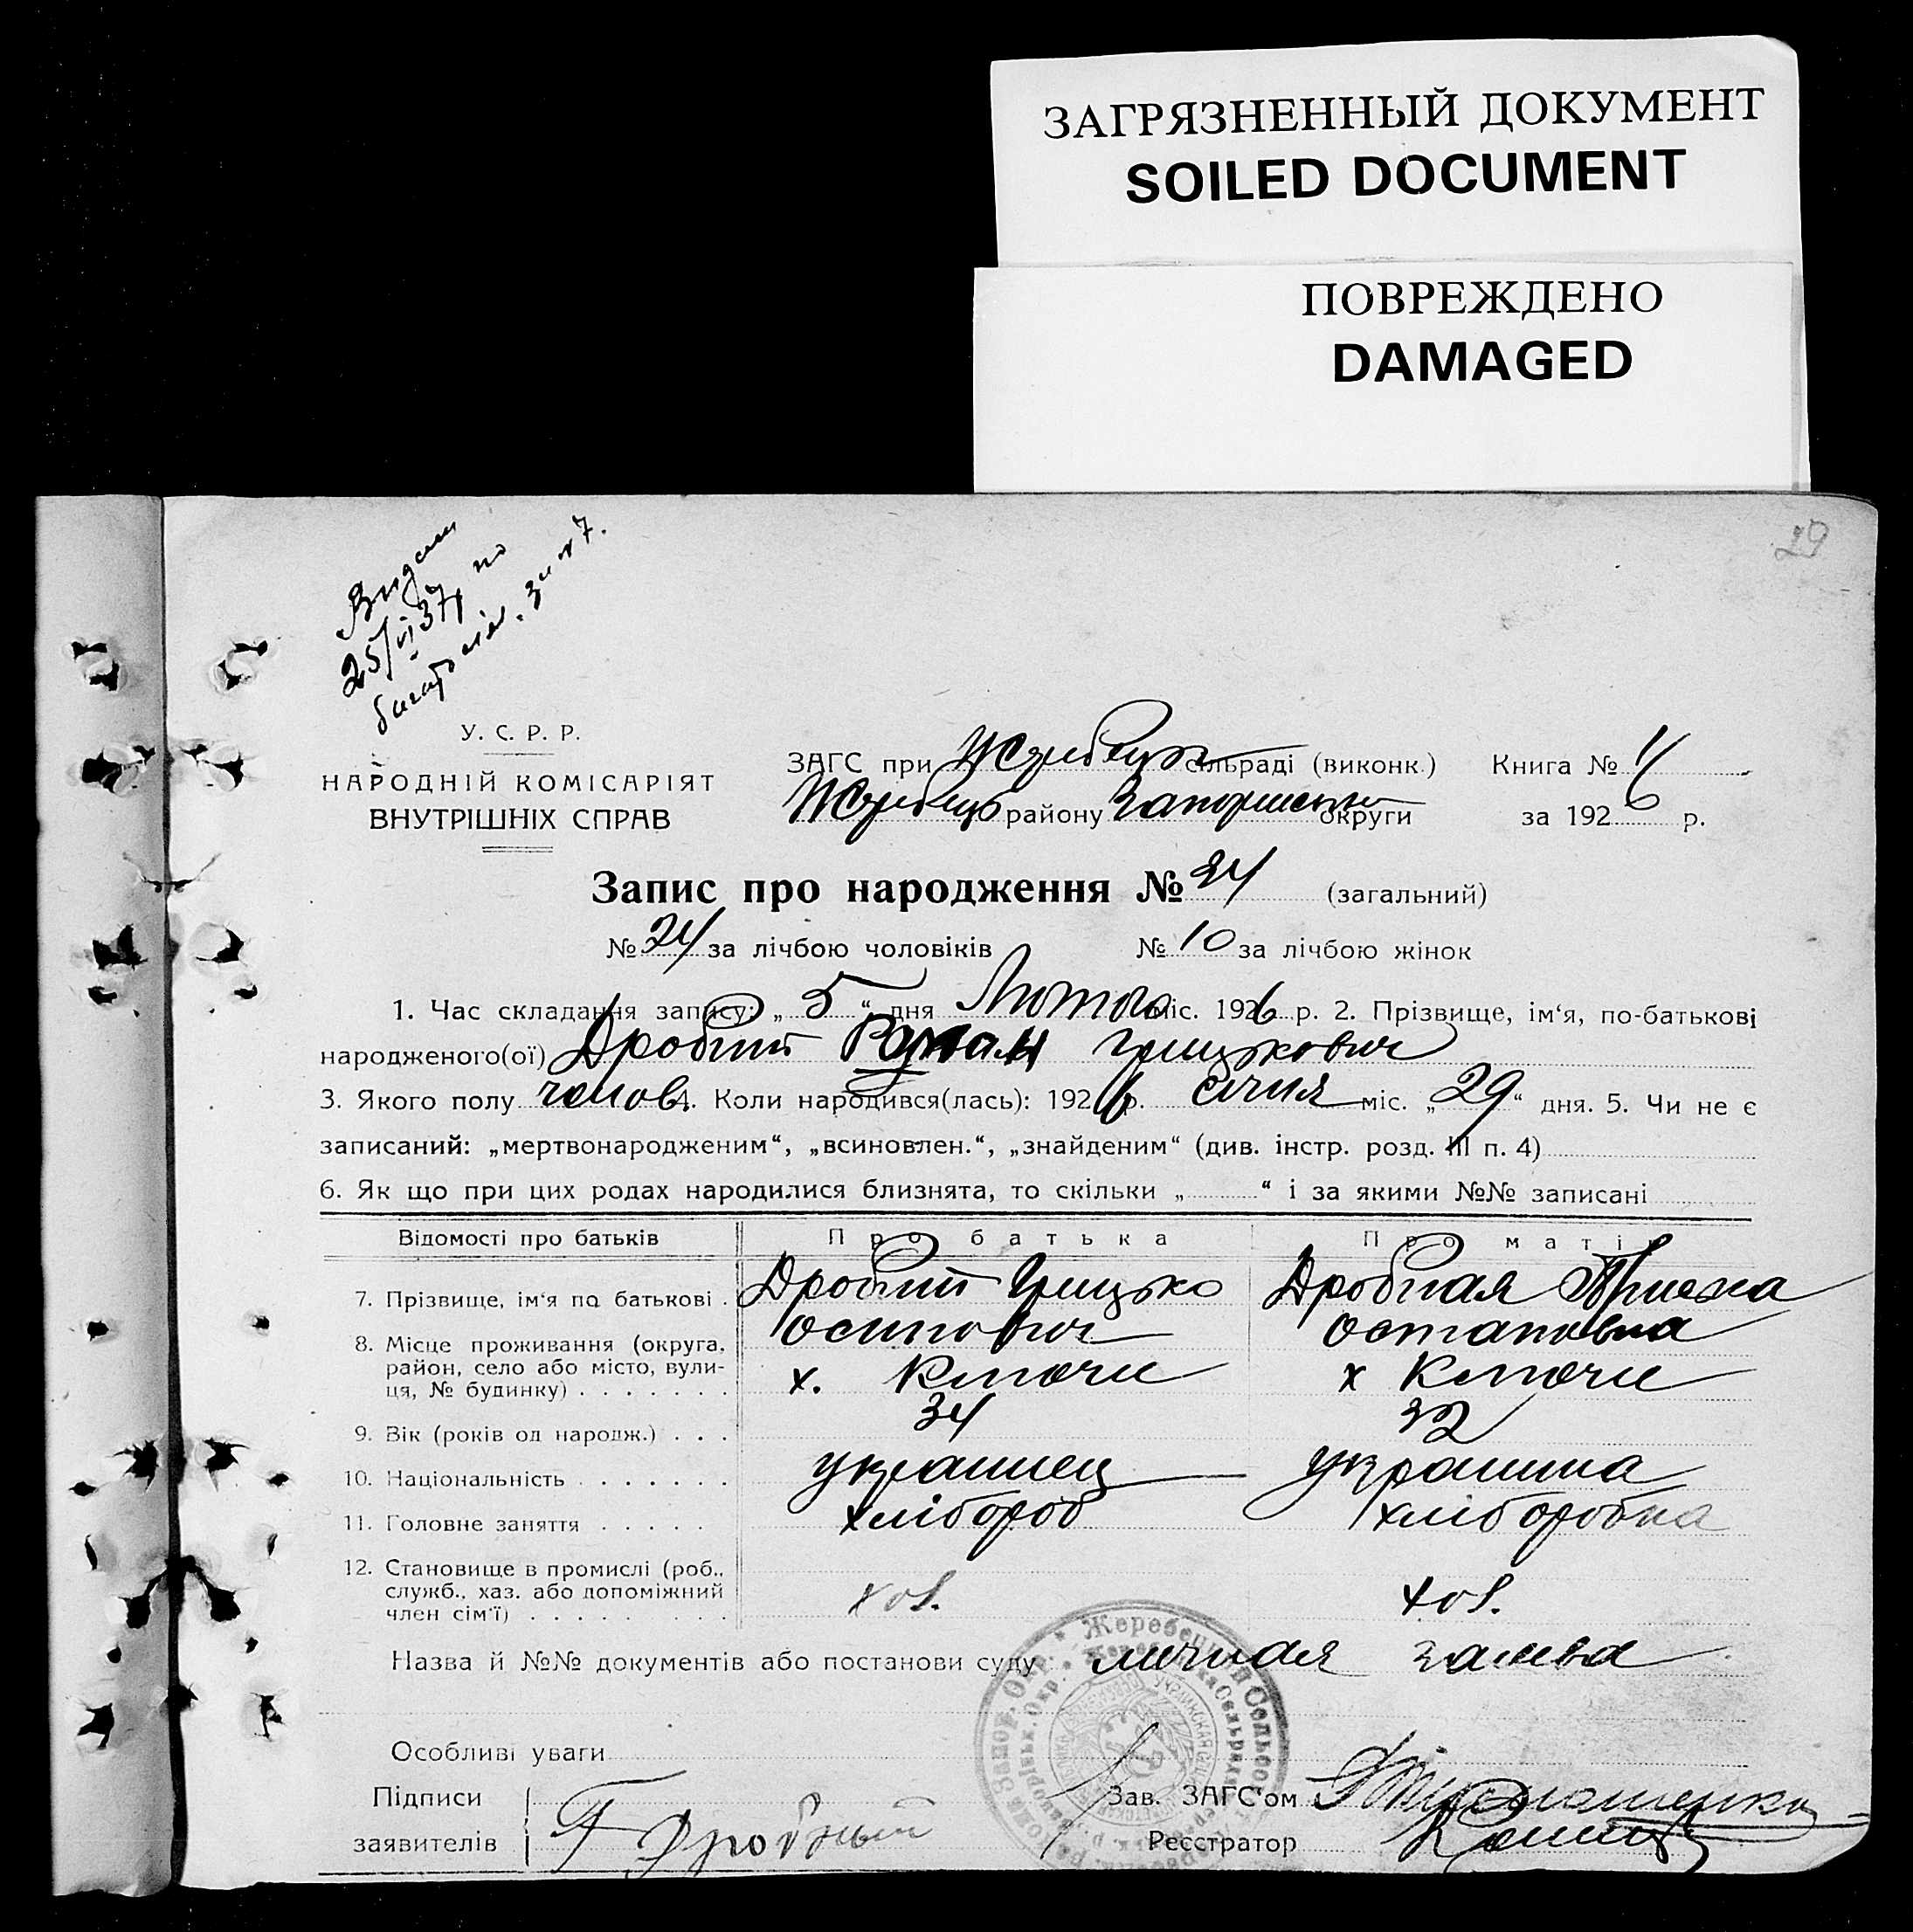 ЗАГРЯЗНЕННЫЙ ДОКУМЕНТ
SOILED DOCUMENT
ПОВРЕЖДЕНО
DAMAGED
29
Видан
25/VI 37 по
У. С. Р. Р.
НАРОДНІЙ КОМІСАРІЯТ
ВНУТРІШНІХ СПРАВ
ЗАГС при Жеребецк сільраді (виконк.) Книга №
Жеребець району Запоріськ округи за 1926 р.
Запис про народження № 24 (загальний)
№ 24 за лічбою чоловіків № 10 за лічбою жінок
1. Час складання запису: „ 5 “ дня Лютого міс. 1926 р. 2. Прізвище, ім‘я, по-батькові
народженого(ої) Дробний Роман Грицькович
3. Якого полу чолов. 4. Коли народився(лась): 1926 р. січня міс. „ 29 “ дня. 5. Чи не є
записаний: „мертвонародженим“, „всиновлен.“, „знайденим“ (див. інстр. розд. III п. 4)
6. Як що при цих родах народилися близнята, то скільки „ “ і за якими №№ записані
Відомості про батьків Про батька Про матір
7. Прізвище, ім‘я по батькові . Дробний Грицько Осипович Дробная Остаповна
8. Місце проживання (округа, район, село або місто, вулиця, № будинку) . . . . . . . х. Ключи х Ключи
9. Вік (років од народж.) . . . 34 32
10. Національність . . . . . . . украинец украинка
11. Головне заняття . . . . . хлібороб хліборобка
12. Становище в промислі (роб., служб., хаз. або допоміжний член сім‘ї) . . . . . . . . хоз. хоз.
Назва й №№ документів або постанови суду личная заява
Особливі уваги
Підписи
заявителів Г Дробный
Зав. ЗАГС‘ом
Реєстратор